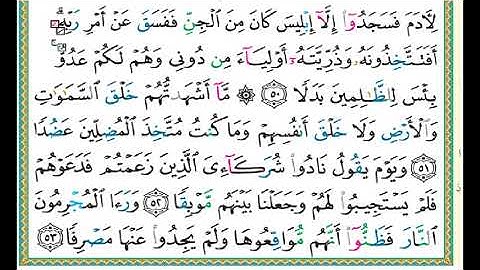 لِأَدَمَ فَسَجَدُوا۟ إِلَّآ إِبْلِيسَ كَانَ مِنَ الْجِنِّ فَفَسَقَ عَنْ أَمْرِ رَبِّهِۦٓ
أَفَتَتَّخِذُونَهُۥ وَذُرِّيَّتَهُۥٓ أَوْلِيَآءَ مِن دُونِى وَهُمْ لَكُمْ عَدُوٌّۢ
بِئْسَ لِلظَّٰلِمِينَ بَدَلًا ۝٥٠ ۞ مَّآ أَشْهَدتُّهُمْ خَلْقَ السَّمَٰوَٰتِ
وَالْأَرْضِ وَلَا خَلْقَ أَنفُسِهِمْ وَمَا كُنتُ مُتَّخِذَ الْمُضِلِّينَ عَضُدًا
۝٥١ وَيَوْمَ يَقُولُ نَادُوا۟ شُرَكَآءِىَ الَّذِينَ زَعَمْتُمْ فَدَعَوْهُمْ
فَلَمْ يَسْتَجِيبُوا۟ لَهُمْ وَجَعَلْنَا بَيْنَهُم مَّوْبِقًا ۝٥٢ وَرَءَا الْمُجْرِمُونَ
النَّارَ فَظَنُّوٓا۟ أَنَّهُم مُّوَاقِعُوهَا وَلَمْ يَجِدُوا۟ عَنْهَا مَصْرِفًا ۝٥٣